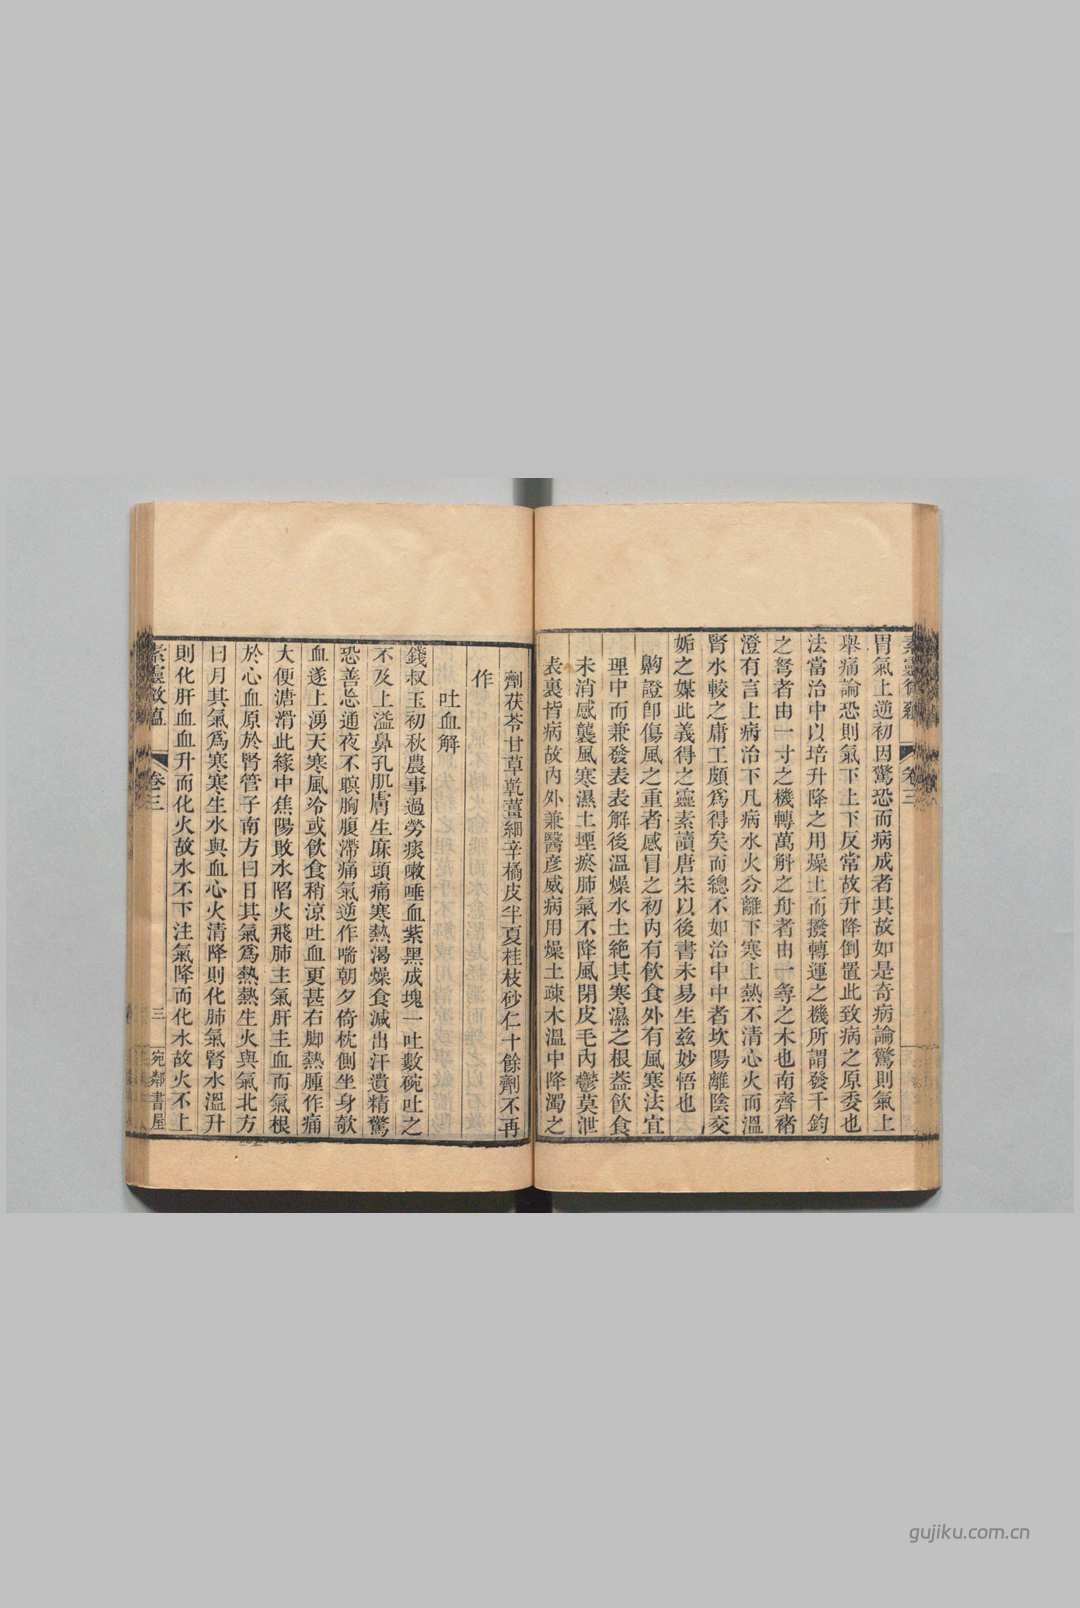 胃氣上逆初因驚恐而病成者其故如是奇病論驚則氣上
舉痛論恐則氣下上下反常故升降倒置此致病之原委也
法當治中以培升降之用燥土而撥轉運之機所謂發千鈞
之弩者由一寸之機轉萬斛之舟者由一尋之木也南齊褚
澄有言上病治下凡病水火分離下寒上熱不清心火而溫
腎水較之庸工頗為得矣而總不如治中中者坎陽離陰交
姤之媒此義得之靈素讀唐宋以後書未易生茲妙悟也
齁證卽傷風之重者感冒之初內有飮食外有風寒法宜
理中而兼發表表解後溫燥水土絶其寒濕之根葢飮食
未消感襲風寒濕土堙瘀肺氣不降風閉皮毛內鬱莫泄
表裏皆病故內外兼醫彦威病用燥土疎木溫中降濁之
劑茯苓甘草乾薑細辛橘皮半夏桂枝砂仁十餘劑不再
作
吐血解
錢叔玉初秋農事過勞痰嗽唾血紫黑成塊一吐數碗吐之
不及上溢鼻孔肌膚生麻頭痛寒熱渴燥食減出汗遺精驚
恐善忘通夜不瞑胸腹滯痛氣逆作喘朝夕倚枕側坐身欹
血遂上湧天寒風冷或飮食稍涼吐血更甚右脚熱腫作痛
大便溏滑此緣中焦陽敗水陷火飛肺主氣肝主血而氣根
於心血原於腎管子南方曰日其氣為熱熱生火與氣北方
曰月其氣為寒寒生水與血心火清降則化肺氣腎水溫升
則化肝血血升而化火故水不下注氣降而化水故火不上
素靈微蘊 卷三 三 宛鄰書屋
gujiku.com.cn